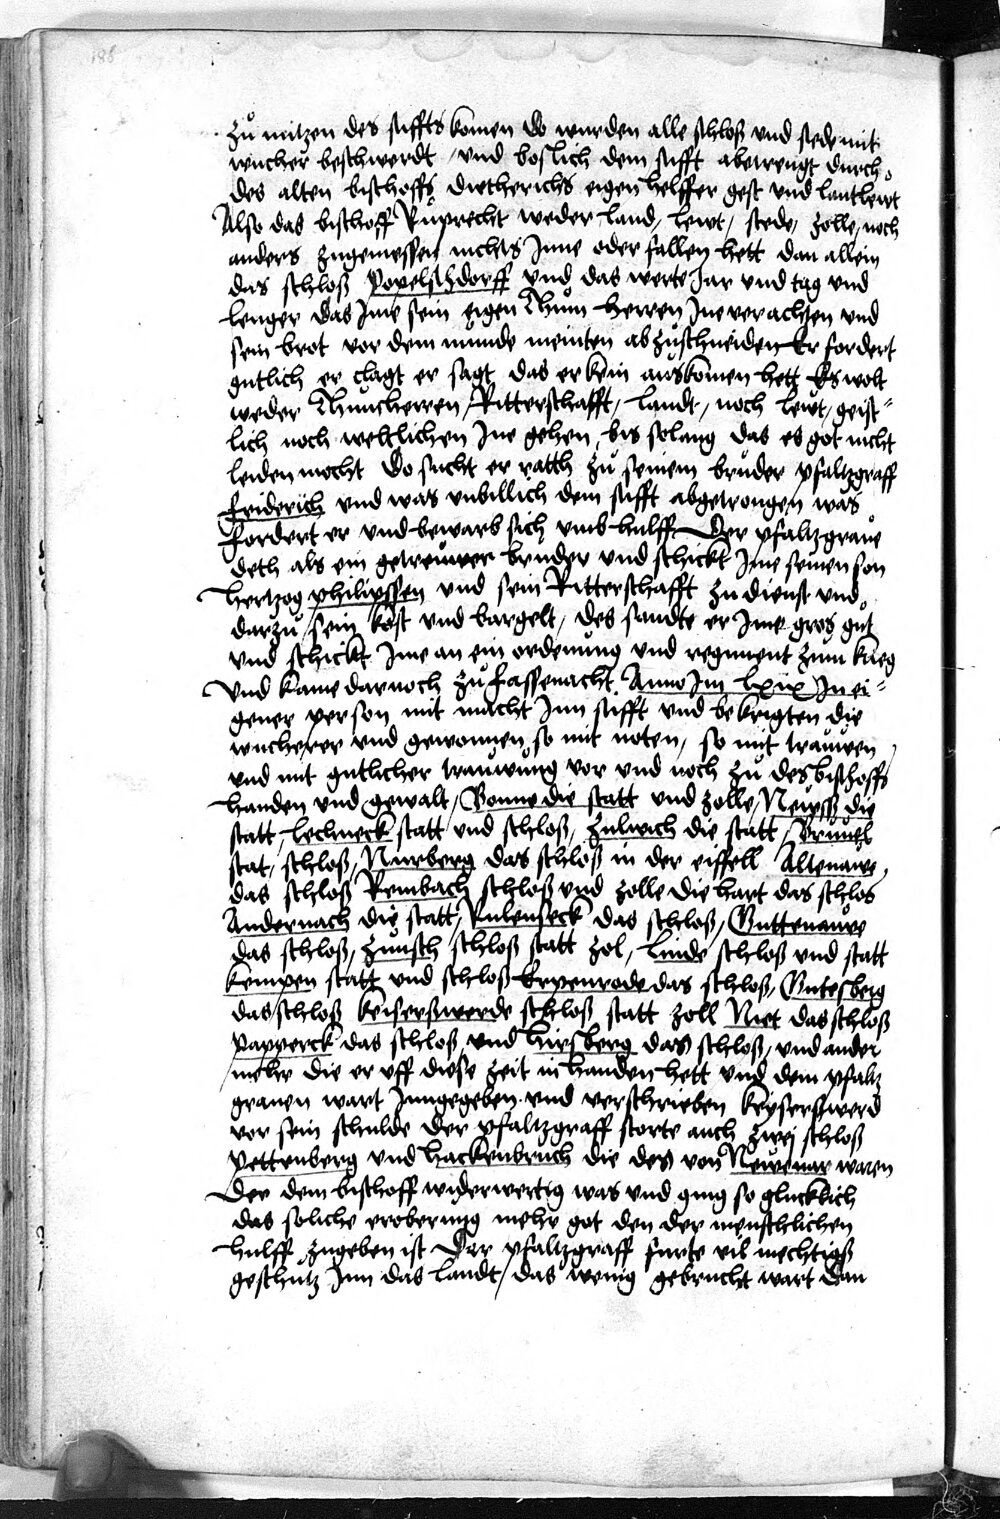 186
zu nutzen des stiffts komen do wurden alle schloß und stede mit
wucher beschwerdt / und boslich dem stifft abetrengt durch
des alten bischoffs dietherichs eigen helffer gest und lantlewt
Also das bischoff Ruprecht weder land, lewt, stede, zolle, noch
anders zugemessen nichts Inne oder fallen hett dan allein
das schloß Popelschdorff und das werte Jar und tag und
lenger das Ime sein eigen Thum herren Ine verachten und
sein brot vor dem munde meinten abzuschneiden Er fordert
gutlich er clagt er sagt das er kein auskomen hett Es wolt
weder Thumherren, Ritterschafft, landt, noch lewt, geist=
lich noch weltlichen Ine gehen, bis solang das es got nicht
leiden mocht Do sucht er ratth zu seinem bruder pfaltzgraff
friderich und was unbillich dem stifft abgetrongen was
Fordert er und bewarb sich umb hulff Der pfaltzgrave
deth als ein getreuwer bruder und schickt Ime seinen son
hertzog philipssen und sein Ritterschafft zu dienst und
darzu sein kost und bargelt, des sandte er Ime gros gut
und schickt Ime an ein ordenung und regiment zum krieg
Und kame darnoch zu fassenacht Anno Im lxix In ei=
gener person mit macht Inn stifft und bekrigten die
wucherer und gewonnen so mit noten, so mit trauwen
und mit gutlicher trauwung vor und noch zu des bischoffs
handen und gewalt, Bonne die statt und zolle, Neuyss die
statt, lechneck statt und schloß, zulwich die statt, Bruuel
stat, schloß, Nurberg das schloß in der eiffell Altenawe,
das schloß Rembach schloß und zolle die hart das schlos
Andernach die statt, Rulenseck das schloß, Guttenauwe
das schloß, zunsch schloß statt zol, Linde schloß und statt
kempen statt und schloß Erpenrode das schloß, Gutesberg
das schloß keiserßwerde schloß statt zoll Niet das schloß
papperck das schloß, und hirsberg das schloß, und ander
mehr die er uff diese zeit in handen hett und dem pfaltz
graven wart Inngegeben und verschrieben keyserßwerd
vor sein schulde Der pfaltzgraff storte auch zwei schloß
pettenberg und hackenbruch die des von Newenar waren
Der dem bischoff widerwertig was und ging so glucklich
das soliche eroberung mehr got den der menschlichen
hulff zugeben ist Der pfaltzgraff furte vil mechtigß
geschutz Inn das landt, das wenig gebrucht wart dan